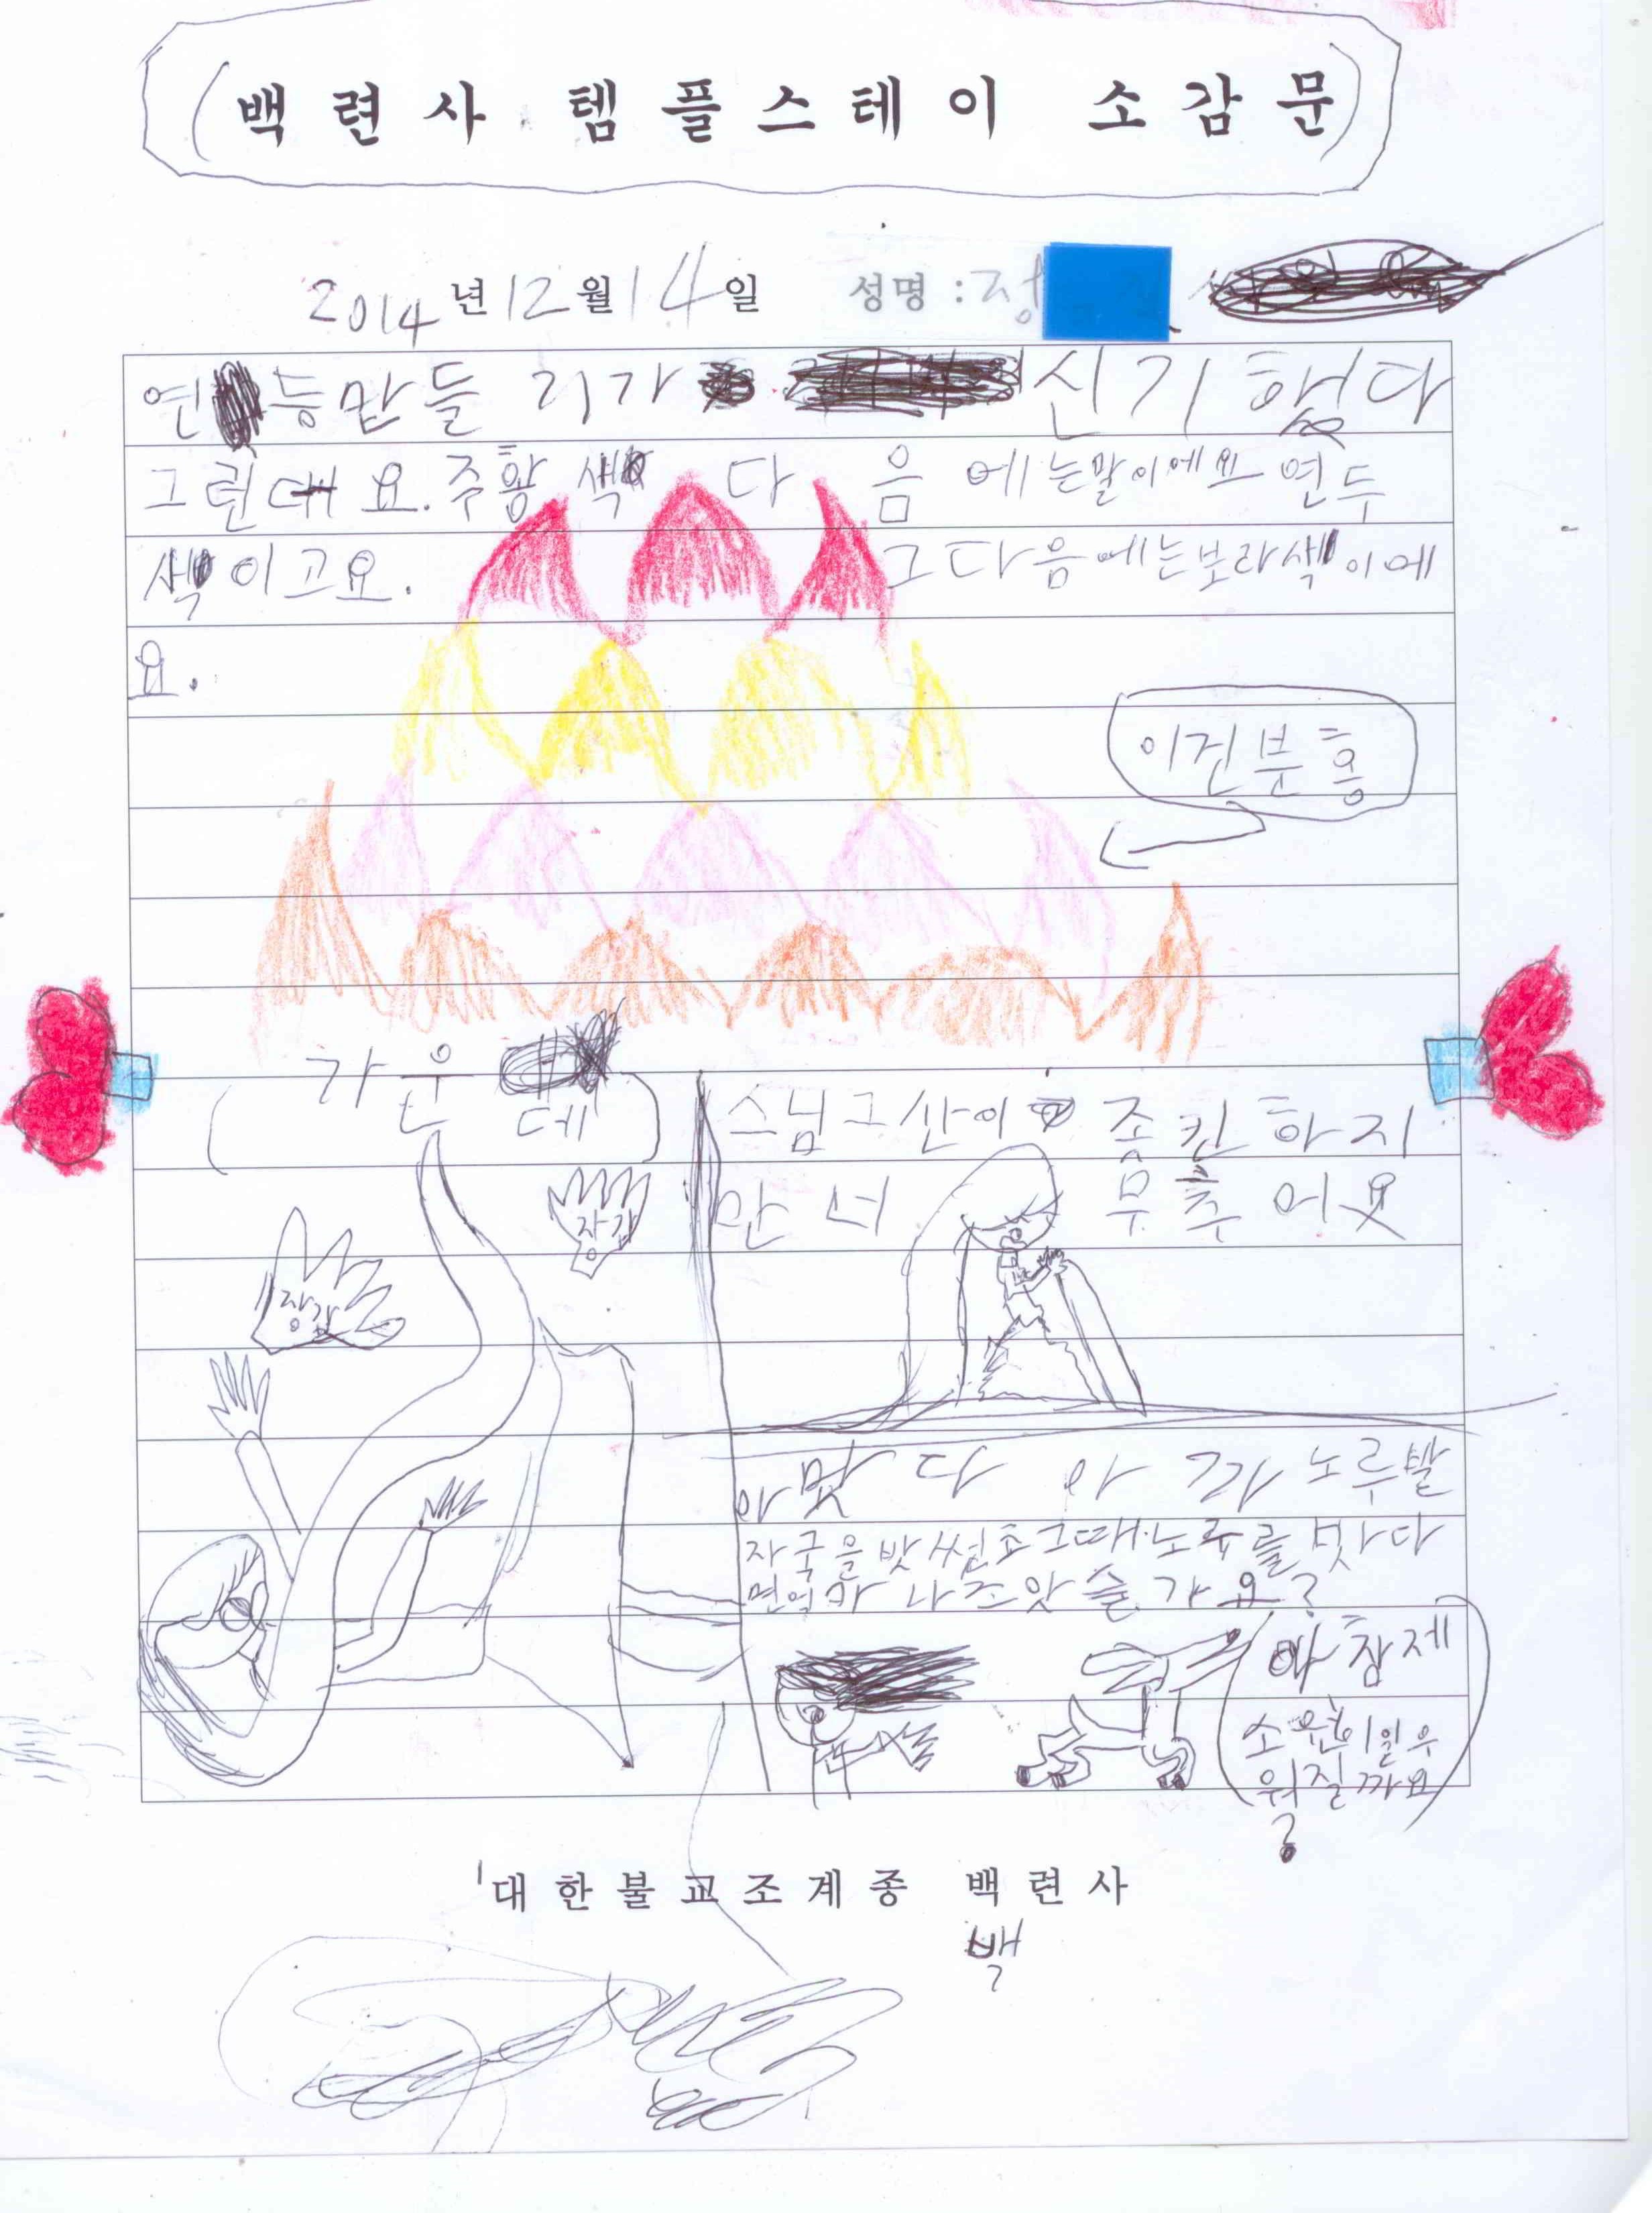 백련사 템플스테이 소감문
2014년 12월 14일 성명 : 정
연등만들기가 신기했다
그런대요. 주황색 다음에는말이에요 연두
색이고요. 그다음에는보라색이에
요.
이건분홍
가운데
스님그산이 좀 힌하지
만 너무 추어요
장갑
장갑
아맞다 아까 노루발
자국을 밧썼죠 그때노루를 밧다
면 나조앗슬가요?
아참제
소원이일우
워질까요
?
대한불교조계종 백련사
백